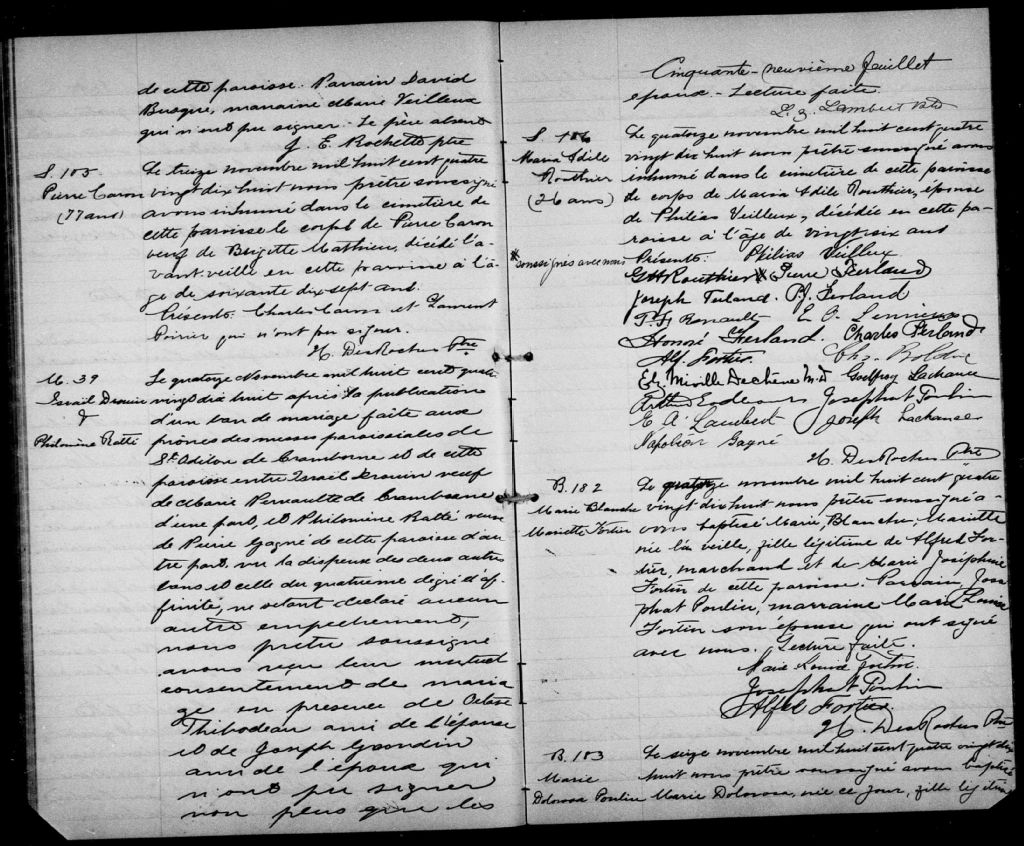 de cette paroisse. Parrain David
Busque, marraine Marie Veilleux
qui n'ont pu signer. Le père absent
J. E. Rochette ptre
S. 105
Pierre Caron
(77 ans)
Le treize novembre mil huit cent quatre
vingt dix huit nous prêtre soussigné
avons inhumé dans le cimetière de
cette paroisse le corps de Pierre Caron
veuf de Brigitte Mathieu, décédé l'a-
vant veille en cette paroisse à l'â-
ge de soixante dix sept ans.
Présents: Charles Caron et Laurent
Poirier qui n'ont pu signer.
H. DesRochers Ptre
M. 39
Israil Drouin
&
Philomine Ratté
Le quatorze Novembre mil huit cent quatre
vingt dix huit après la publication
d'un ban de mariage faite aux
prônes des messes paroissiales de
St. Odilon de Cranborne et de cette
paroisse entre Israil Drouin veuf
de Marie Perreault de Cranborne
d'une part, et Philomine Ratté veuve
de Pierre Gagné de cette paroisse d'au
tre part. vu la dispense des deux autres
bans et celle du quatrième degré d'af-
finité, ne s'étant déclaré aucun
autre empechement,
nous prêtre soussigné
avons reçu leur mutuel
consentement de maria
ge en présence de Octave
Thibodeau ami de l'épouse
et de Joseph
ami de l'époux qui
n'ont pu signer
non plus que les
Cinquante-neuvième feuillet
epoux. - Lecture faite.
L. Z. Lambert Ptr
S. 106
Maria Adile
Routhier
(26 ans)
Le quatorze novembre mil huit cent quatre
vingt dix huit nous prêtre soussigné avons
inhumé dans le cimetière de cette paroisse
le corps de Maria Adile Routhier, épouse
de Philias Veilleux, décédée en cette pa-
roisse à l'âge de vingt six ans
* soussignés avec nous
Présents: Philias Veilleux
G H Routhier X Pierre Ferland
Joseph Ferland. P. J. Ferland
T. F. Renault E. O. Lemieux
Honoré Ferland. Charles Ferland
Alf Fortier. Chs. Bolduc
Ed. Miville Dechêne M.D Godfroy Lachance
Arthur Josephat Poulin
E A Lambert Joseph Lachance
Napoléon Gagné
H. DesRochers Ptre
B. 182
Marie Blanche
Mariette Fortier
Le quatorze novembre mil huit cent quatre
vingt dix huit nous prêtre soussigné a-
vons baptisé Marie, Blanche, Mariette
née la veille, fille légitime de Alfred For-
tier, marchand et de Marie Joséphine
Fortin de cette paroisse. Parrain, Jose
phat Poulin, marraine Marie Louise
Fortin son épouse qui ont signé
avec nous. Lecture faite.
Marie Louise Fortin
Josephat Poulin
Alfred Fortier.
H. DesRochers Ptre
B. 183
Marie
Dolorosa Poulin
Le seize novembre mil huit cent quatre vingt dix
huit nous prêtre soussigné avons baptisé
Marie Dolorosa, née ce jour, fille légitime